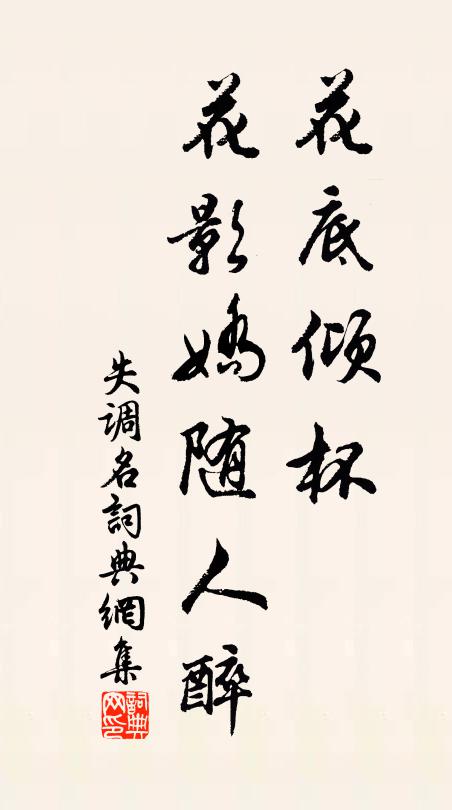 花底倾杯
花影嬌随人醉
失调名詞典網集
詞典网印